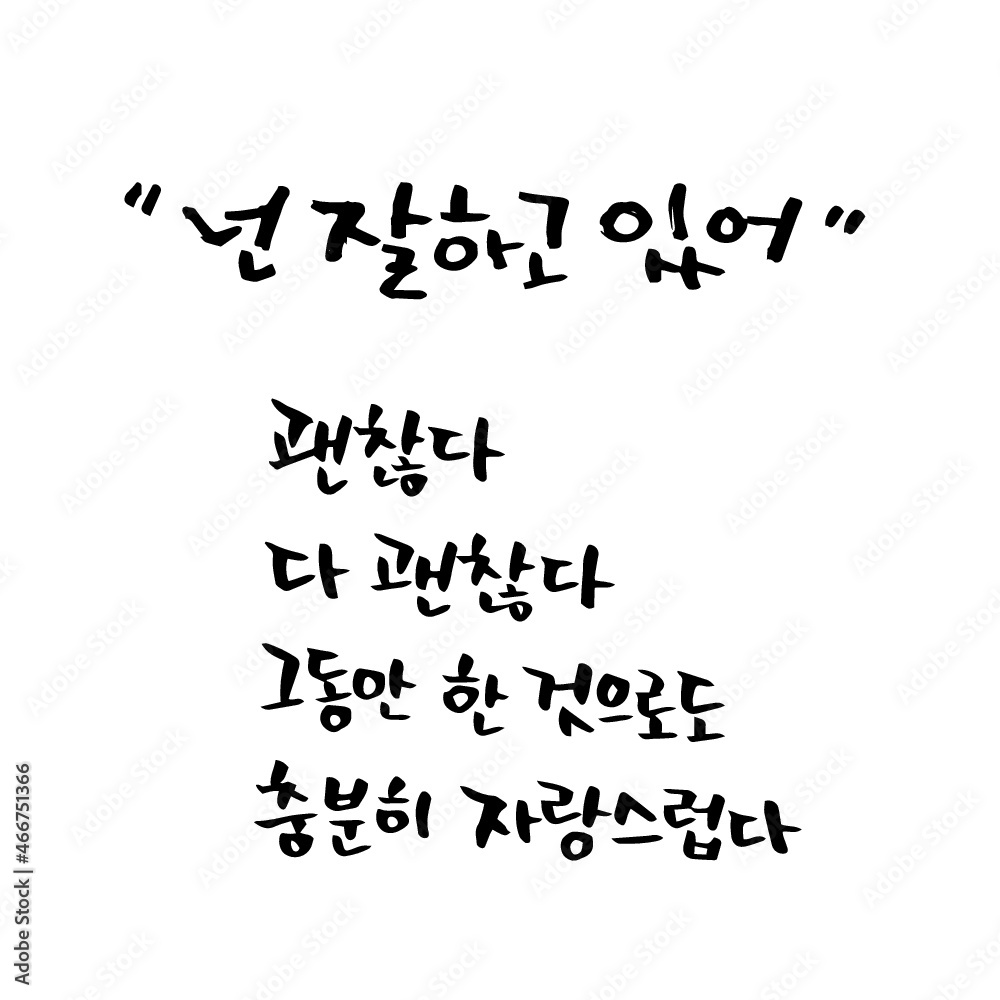 "넌 잘하고 있어"
괜찮다
다 괜찮다
그동안 한 것으로도
충분히 자랑스럽다
Adobe Stock | #466751366